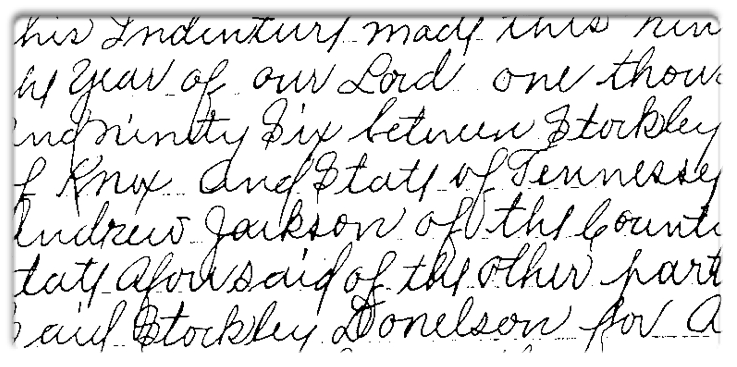 his Indenture made this nin
he Year of our Lord one thous
and ninety Six between Stockley
f Knox and State of Tennessee
Andrew Jackson of the Count
tate aforesaid of the other part
Said Stockley Donelson for a